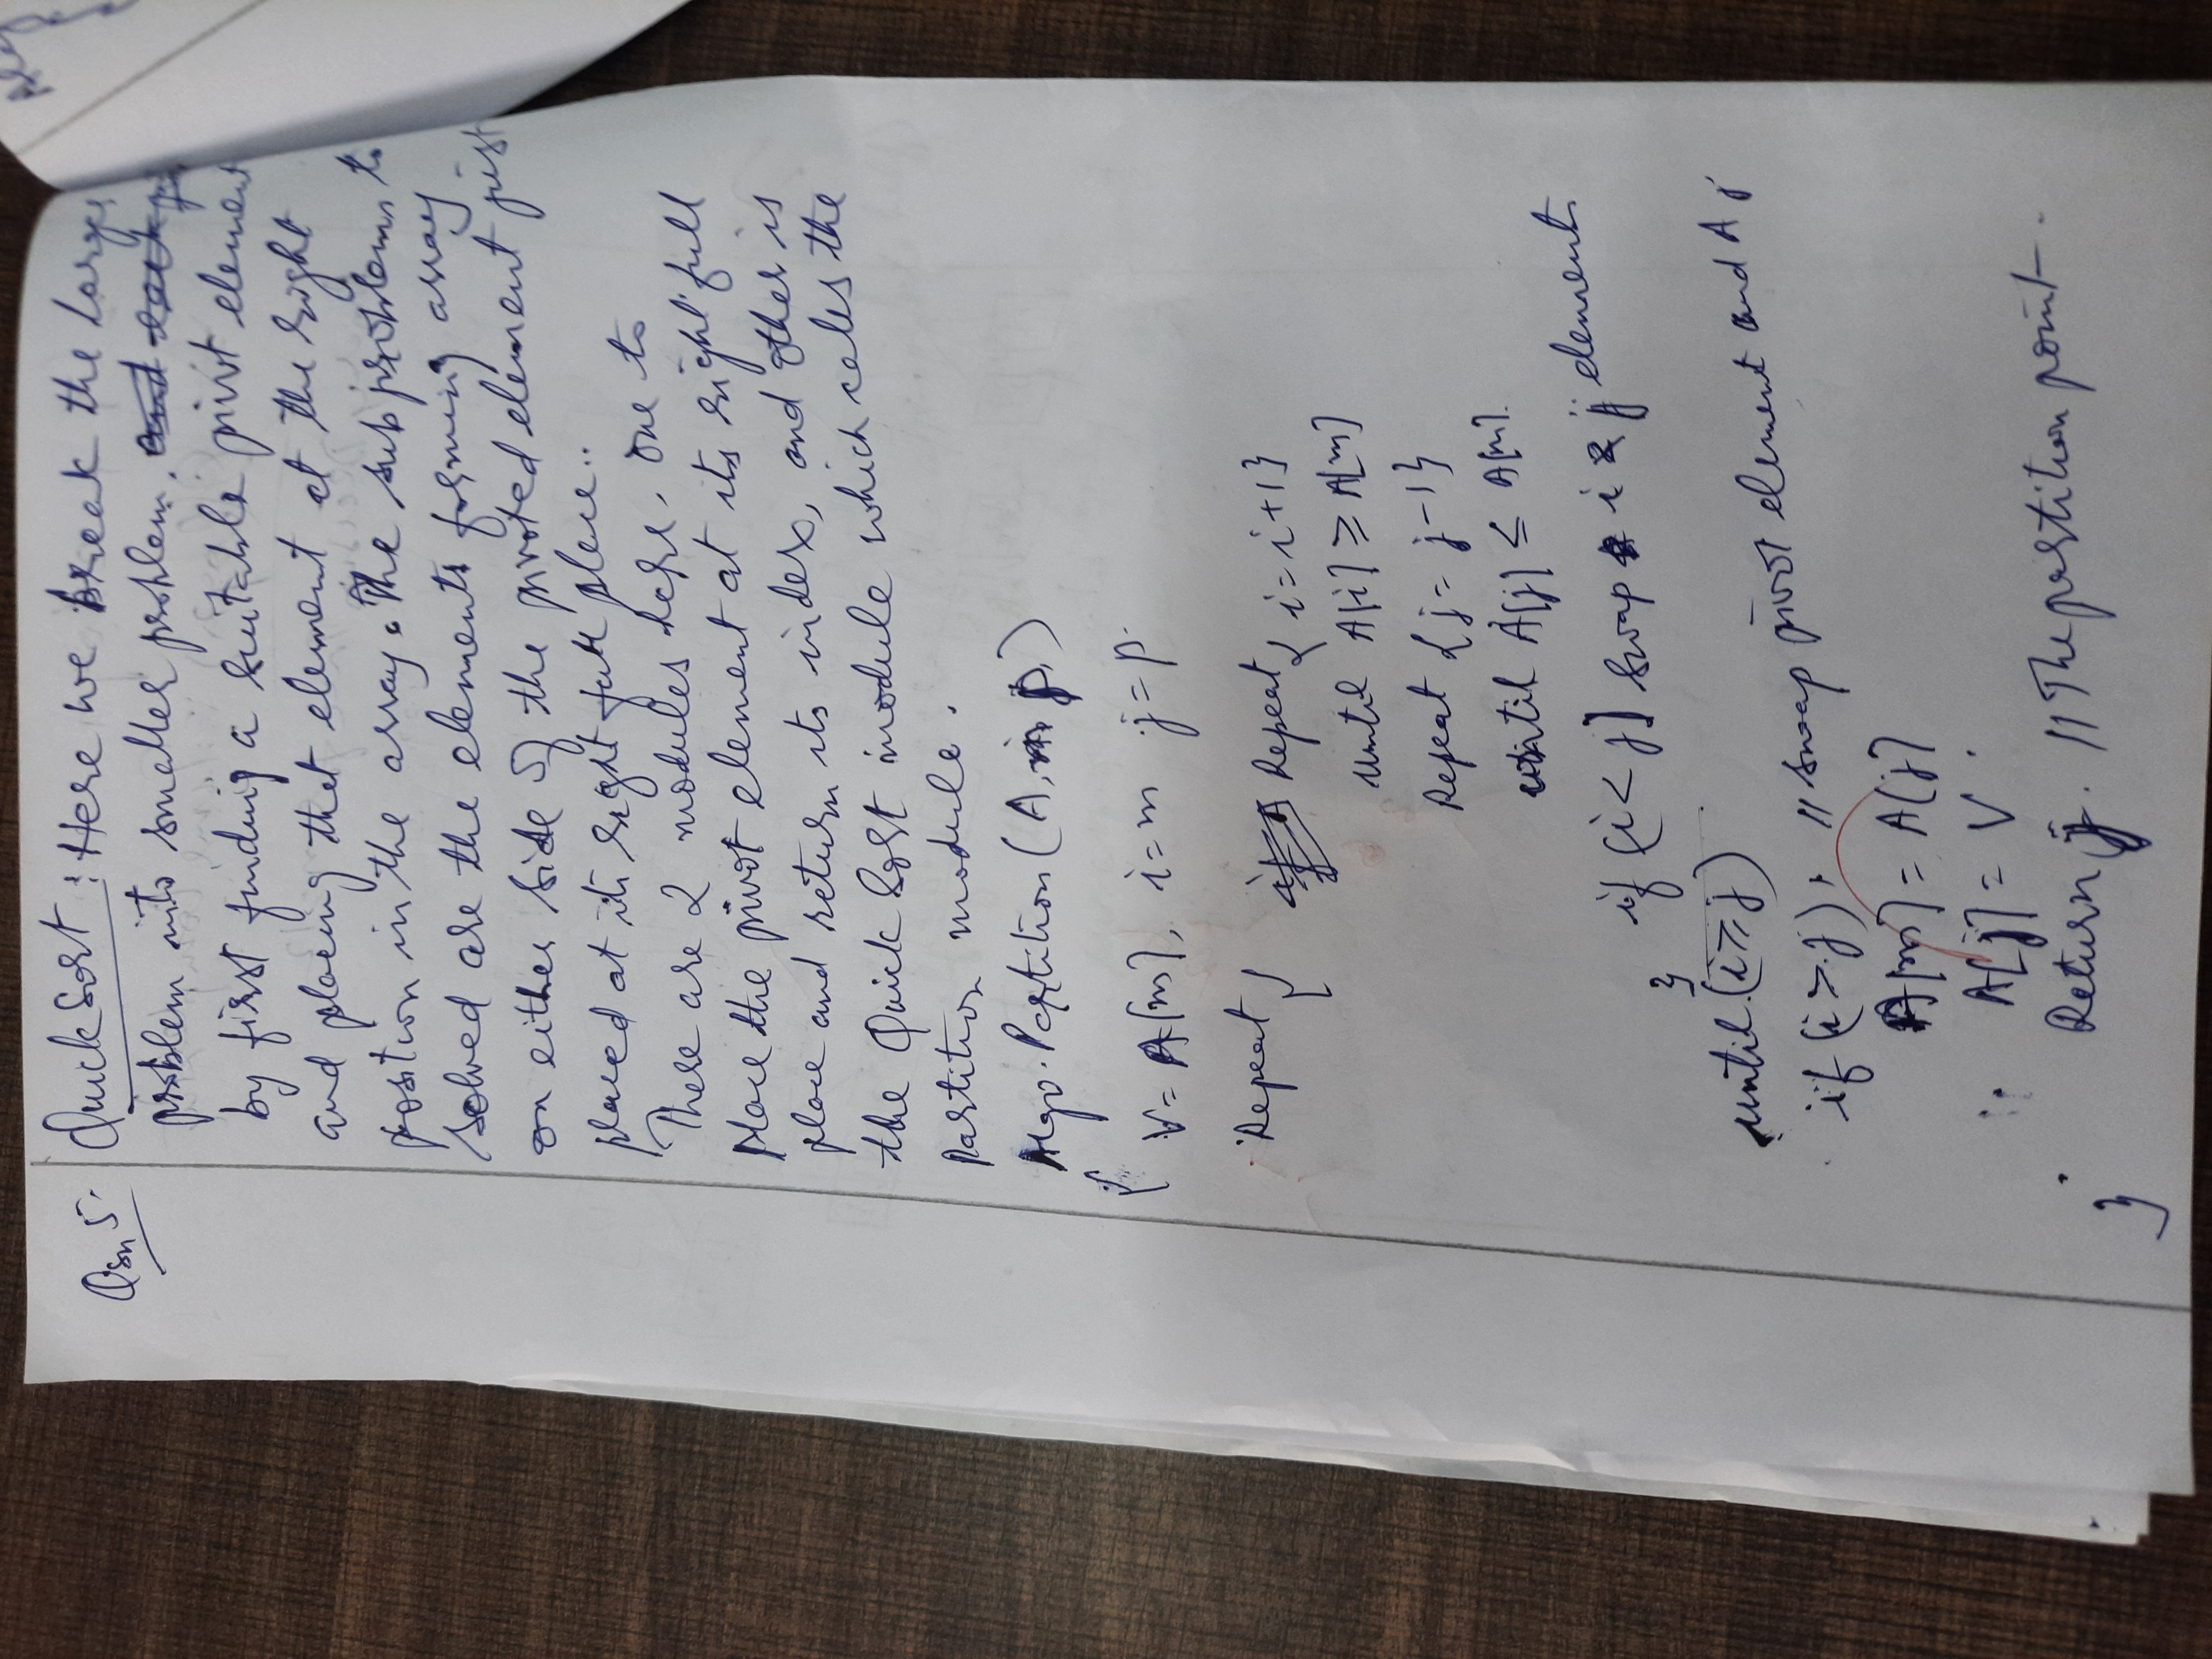 Qsn 5. Quick Sort : Here we break the large
problem into smaller problem.
by first finding a suitable pivot element
and placing that element at the right
position in the array. The sub problems to
solved are the elements forming array
on either side of the pivoted element just
placed at its right full place..
There are 2 modules here. one to
place the pivot element at its right full
place and return its index, and other is
the Quick Sort module which calls the
Partition module.
Algo. Partition (A, m, p,)
{
V = A[m], i = m j = p.
Repeat { Repeat { i = i + 1 }
until A[i] ≥ A[m]
Repeat { j = j - 1 }
until A[j] ≤ A[m].
if (i < j] swap i & j elements
}
until (i ≥ j)
if (i > j). // swap pivot element and A j
A[m] = A[j]
A[j] = V.
Return j. // The partition point.
}